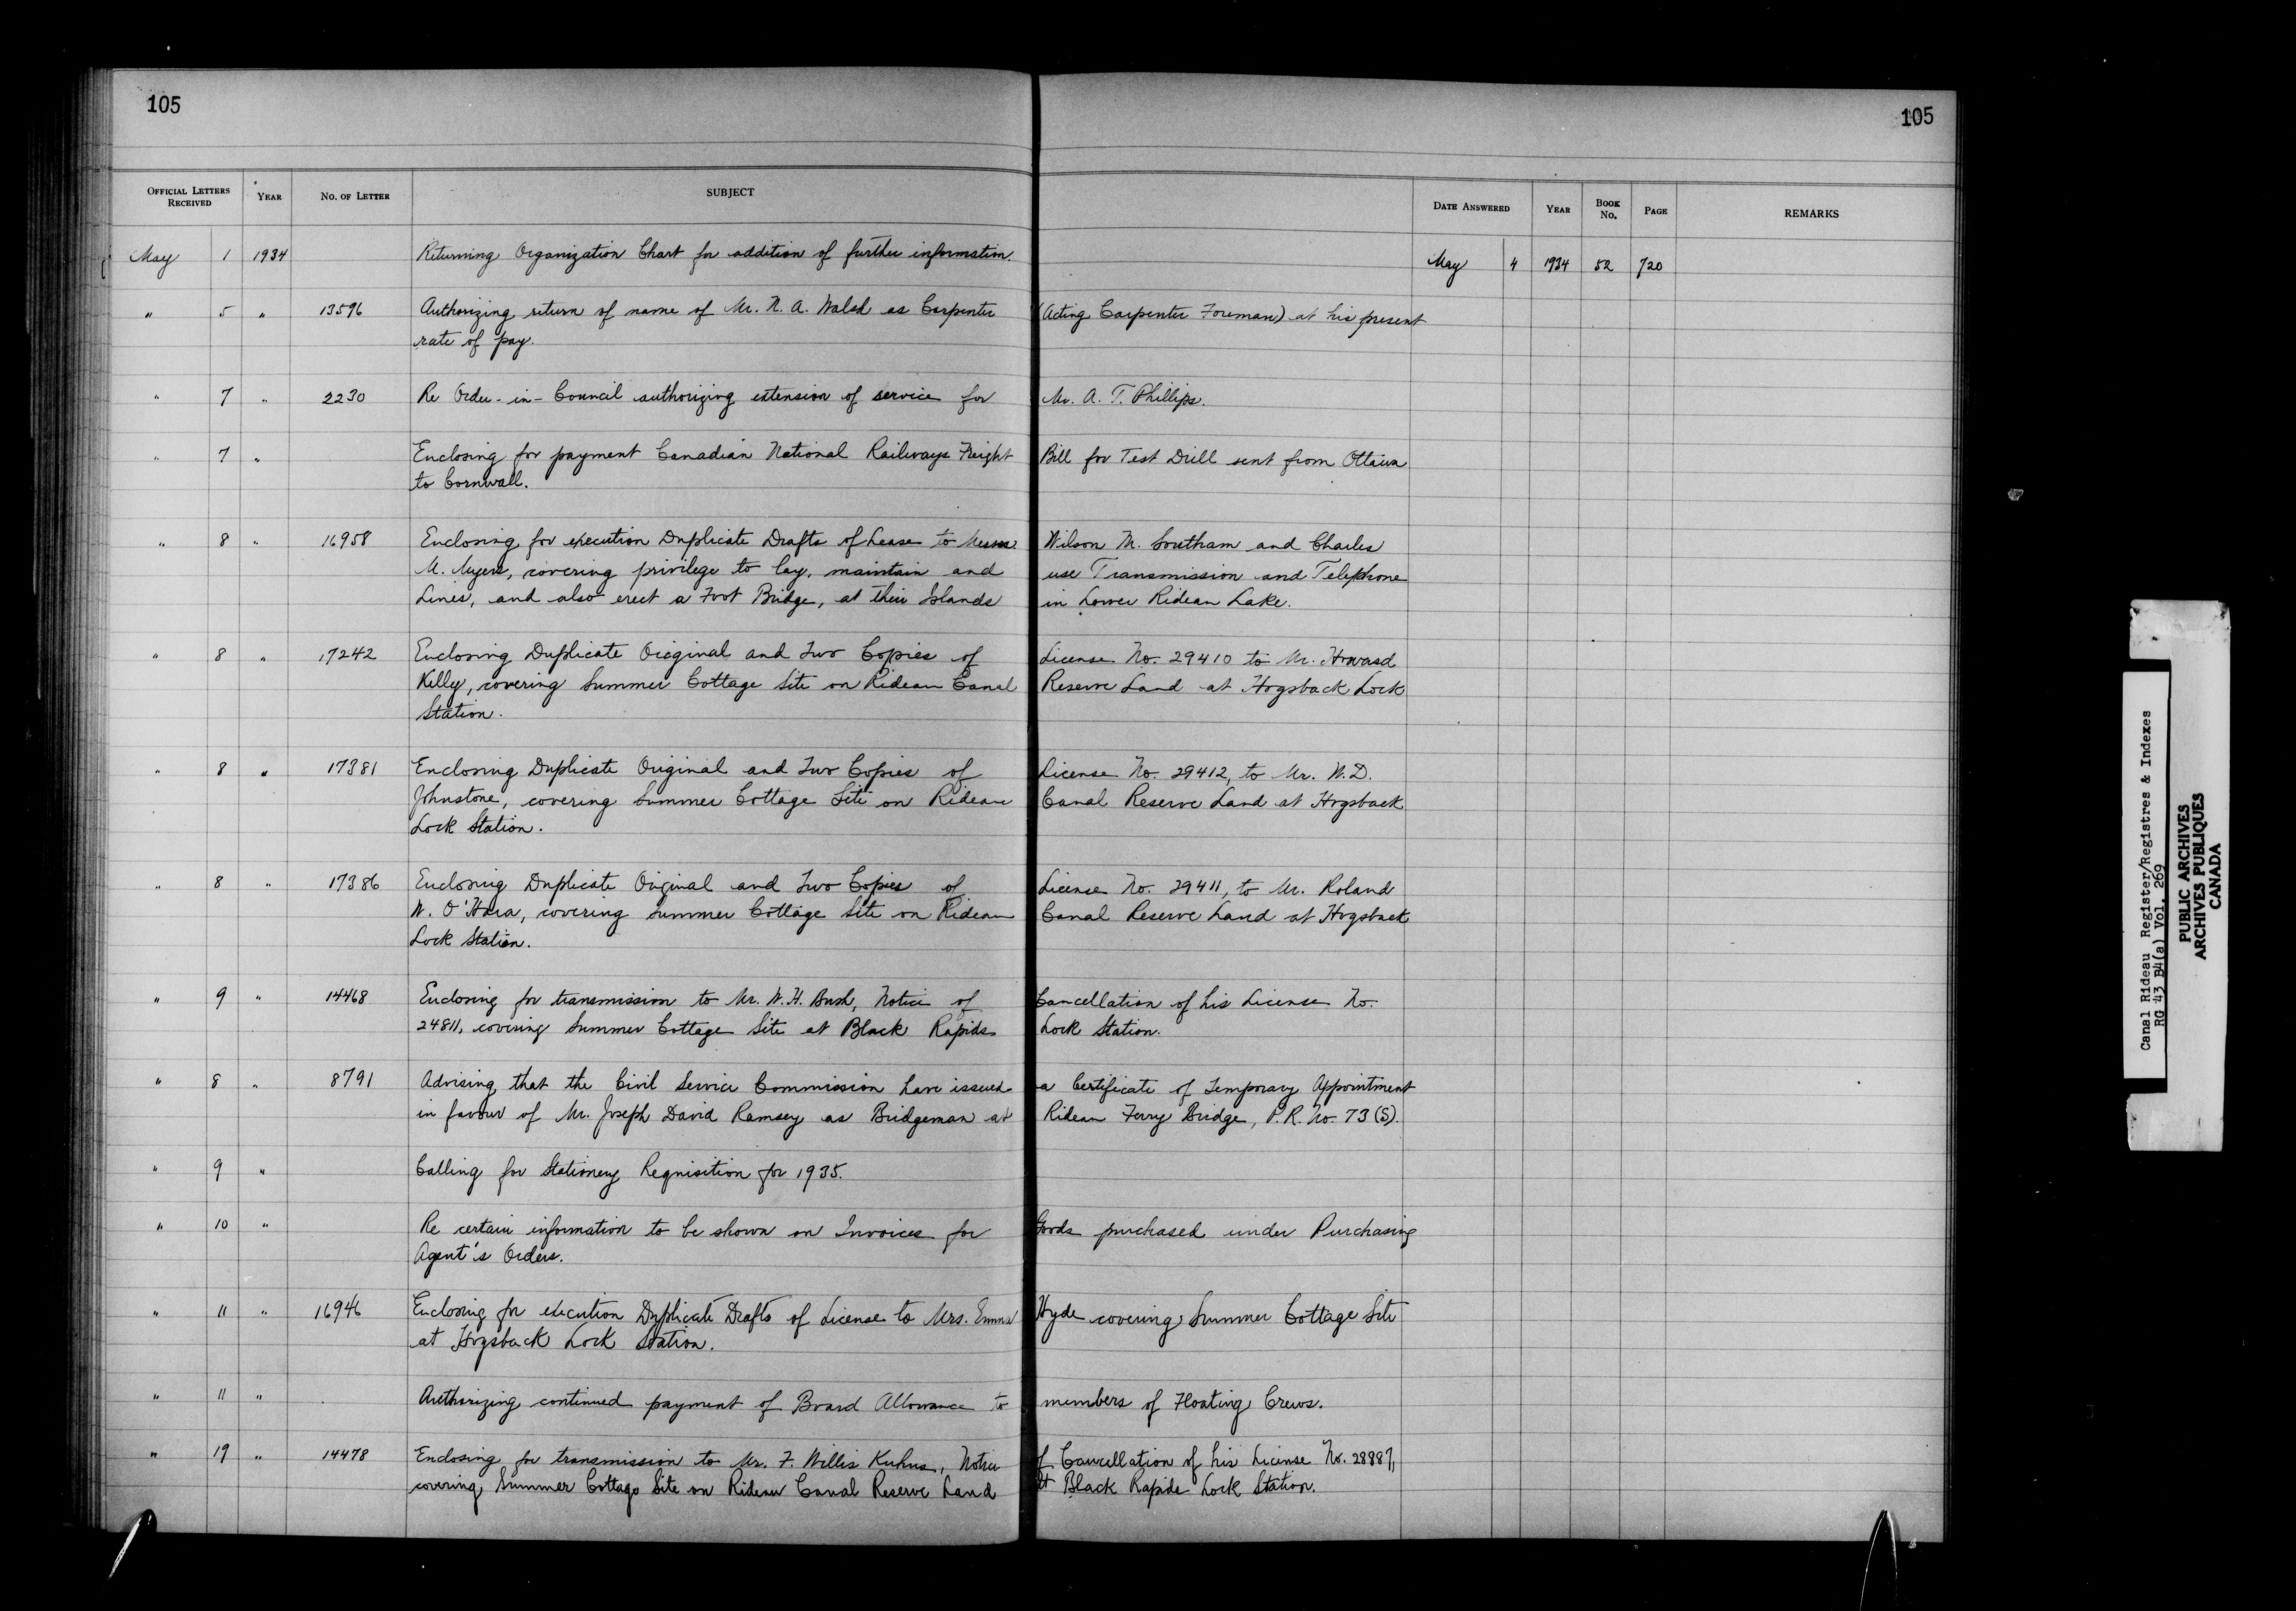 105
105
OFFICIAL LETTERS RECEIVED YEAR NO. OF LETTER SUBJECT DATE ANSWERED YEAR BOOK No. PAGE REMARKS
May 1 1934 Returning Organization Chart for addition of further information. May 4 1934 52 720
" 5 " 13596 Authorizing return of name of Mr. N. A. Walsh as Carpenter (Acting Carpenter Foreman) at his present
rate of pay.
" 7 " 2230 Re Order-in-Council authorizing extension of service for Mr. A. T. Phillips.
" 7 " Enclosing for payment Canadian National Railways Freight Bill for Test Drill sent from Ottawa
to Cornwall.
" 8 " 16958 Enclosing for execution Duplicate Drafts of Lease to Messrs. Wilson M. Southam and Charles
M. Myers, covering privilege to lay, maintain and use Transmission and Telephone
Lines, and also erect a Foot Bridge, at their Islands in Lower Rideau Lake.
" 8 " 17242 Enclosing Duplicate Original and Two Copies of License No. 29410 to Mr. Howard
Kelly, covering Summer Cottage Site on Rideau Canal Reserve Land at Hogsback Lock
Station.
" 8 " 17381 Enclosing Duplicate Original and Two Copies of License No. 29412, to Mr. W. D.
Johnstone, covering Summer Cottage Site on Rideau Canal Reserve Land at Hogsback
Lock Station.
" 8 " 17386 Enclosing Duplicate Original and Two Copies of License No. 29411, to Mr. Roland
W. O'Hara, covering Summer Cottage Site on Rideau Canal Reserve Land at Hogsback
Lock Station.
" 9 " 14468 Enclosing for transmission to Mr. W. H. Bush, Notice of Cancellation of his License No.
24811, covering Summer Cottage Site at Black Rapids Lock Station.
" 8 " 8791 Advising that the Civil Service Commission have issued a Certificate of Temporary Appointment
in favour of Mr. Joseph David Ramsey as Bridgeman at Rideau Ferry Bridge, P.R. No. 73 (S).
" 9 " Calling for Stationery Requisition for 1935.
" 10 " Re certain information to be shown on Invoices for Goods purchased under Purchasing
Agent's Orders.
" 11 " 16946 Enclosing for execution Duplicate Drafts of License to Mrs. Emma Hyde covering Summer Cottage Site
at Hogsback Lock Station.
" 11 " Authorizing continued payment of Board Allowance to members of Floating Crews.
" 19 " 14478 Enclosing for transmission to Mr. F. Willis Kuhns, Notice of Cancellation of his License No. 28887,
covering Summer Cottage Site on Rideau Canal Reserve Land at Black Rapids Lock Station.
Canal Rideau Register/Registres & Indexes
RG 43 B4(a) Vol. 269
PUBLIC ARCHIVES
ARCHIVES PUBLIQUES
CANADA